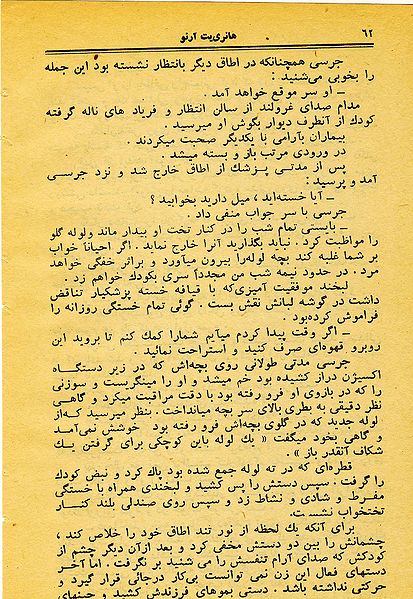 ۶۲
هانری‌یت آرنو
جرسی همچنانکه در اطاق دیگر بانتظار نشسته بود این جمله
را بخوبی می‌شنید :
ـ او سر موقع خواهد آمد .
مدام صدای غرولند از سالن انتظار و فریاد های ناله گرفته
کودک از آنطرف دیوار بگوش او میرسید .
بیماران بآرامی با یکدیگر صحبت میکردند .
در ورودی مرتب باز و بسته میشد .
پس از مدتی پزشک از اطاق خارج شد و نزد جرسی
آمد و پرسید :
ـ آیا خسته‌اید ، میل دارید بخوابید ؟
جرسی با سر جواب منفی داد .
ـ بایستی تمام شب را در کنار تخت او بیدار ماند ولوله گلو
را مواظبت کرد . نباید بگذارید آنرا خارج نماید . اگر احیاناً خواب
بر شما غلبه کند بچه لوله‌را بیرون میآورد و براثر خفگی خواهد
مرد . در حدود نیمه شب من مجدداً سری بکودک خواهم زد .
لبخند موفقیت آمیزی‌که با قیافه خسته پزشکیار تناقض
داشت در گوشه لبانش نقش بست . گوئی تمام خستگی روزانه را
فراموش کرده‌بود .
ـ اگر وقت پیدا کردم میآیم شمارا کمک کنم تا بروید این
روبرو قهوه‌ای صرف کنید و استراحت نمائید .
جرسی مدتی طولانی روی بچه‌اش که در زیر دستگاه
اکسیژن دراز کشیده بود خم میشد و او را مینگریست و سوزنی
را که در بازوی او فرو رفته بود با دقت مراقبت میکرد و گاهی
نظر دقیقی به بطری بالای سر بچه میانداخت . بنظر میرسید که‌از
لوله جدید که در گلوی بچه‌اش فرو رفته بود خوشش نمی‌آمد
و گاهی بخود میگفت « یک لوله باین کوچکی برای گرفتن یک
شکاف آنقدر باز » .
قطره‌ای که در ته لوله جمع شده بود پاک کرد و نبض کودک
را گرفت . سپس دستش را پس کشید و لبخندی همراه با خستگی
مفرط و شادی و نشاط زد و سپس روی صندلی بلند کنار
تختخواب نشست .
برای آنکه یک لحظه از نور تند اطاق خود را خلاص کند ،
چشمانش را بین دو دستش مخفی کرد و بعد ازآن دیگر چشم از
کودکش که صدای آرام تنفسش را می شنید بر نگرفت . اما آخر
دستهای فعال این زن نمی توانست بی‌کار درجائی قرار گیرد و
حرکتی نداشته باشد . دستی بموهای فرزندش کشید و